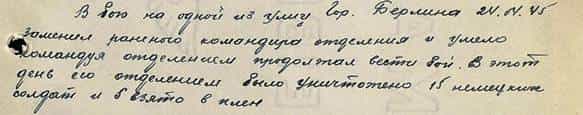 В бою на одной из улиц гор. Берлина 24.04.45
заменил раненого командира отделения и умело
командуя отделением продолжал вести бой. В этот
день его отделением было уничтожено 15 немецких
солдат и 5 взято в плен